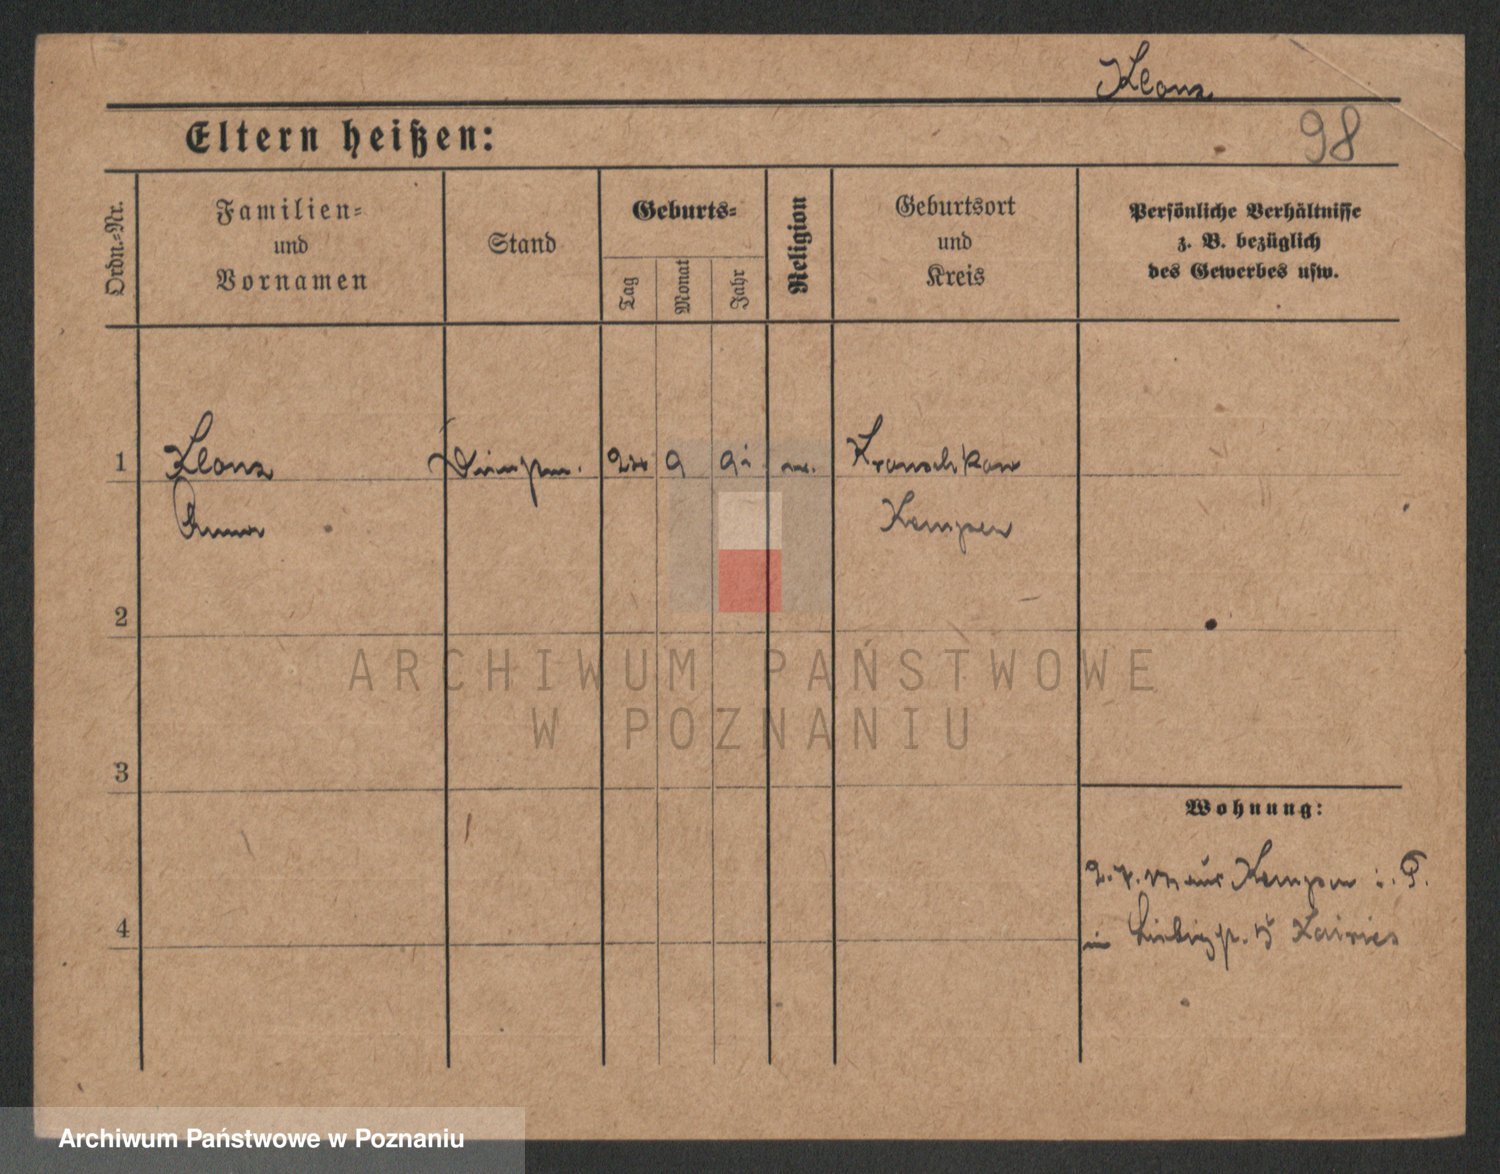 Klonz
Eltern heißen:
98
Ordn.-Nr.
Familien-
und
Vornamen
Stand
Geburts-
Tag
Monat
Jahr
Religion
Geburtsort
und
Kreis
Persönliche Verhältnisse
z. B. bezüglich
des Gewerbes usw.
1
Klonz
9
Kempen
2
3
4
Wohnung:
aus Kempen i. P.
in
ARCHIWUM PAŃSTWOWE
W POZNANIU
Archiwum Państwowe w Poznaniu